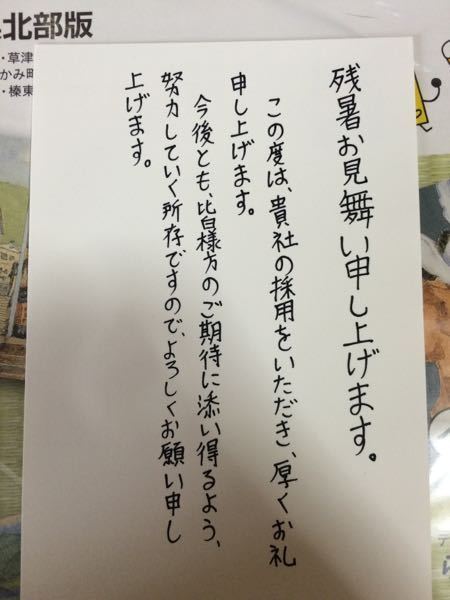 残暑お見舞い申し上げます。
この度は、貴社の採用をいただき、厚くお礼
申し上げます。
今後とも、皆様方のご期待に添い得るよう、
努力していく所存ですので、よろしくお願い申し
上げます。
北部版
・草津
かみ町
・榛東